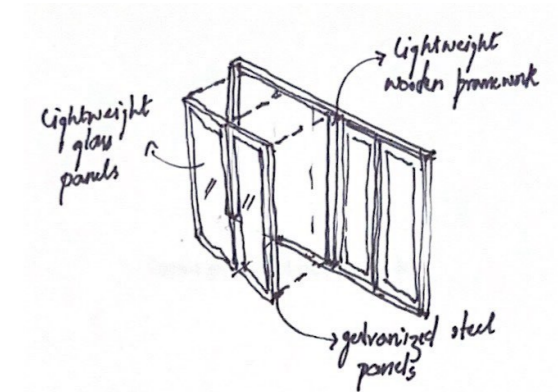 Lightweight
wooden framework
Lightweight
glass
panels
galvanized steel
panels